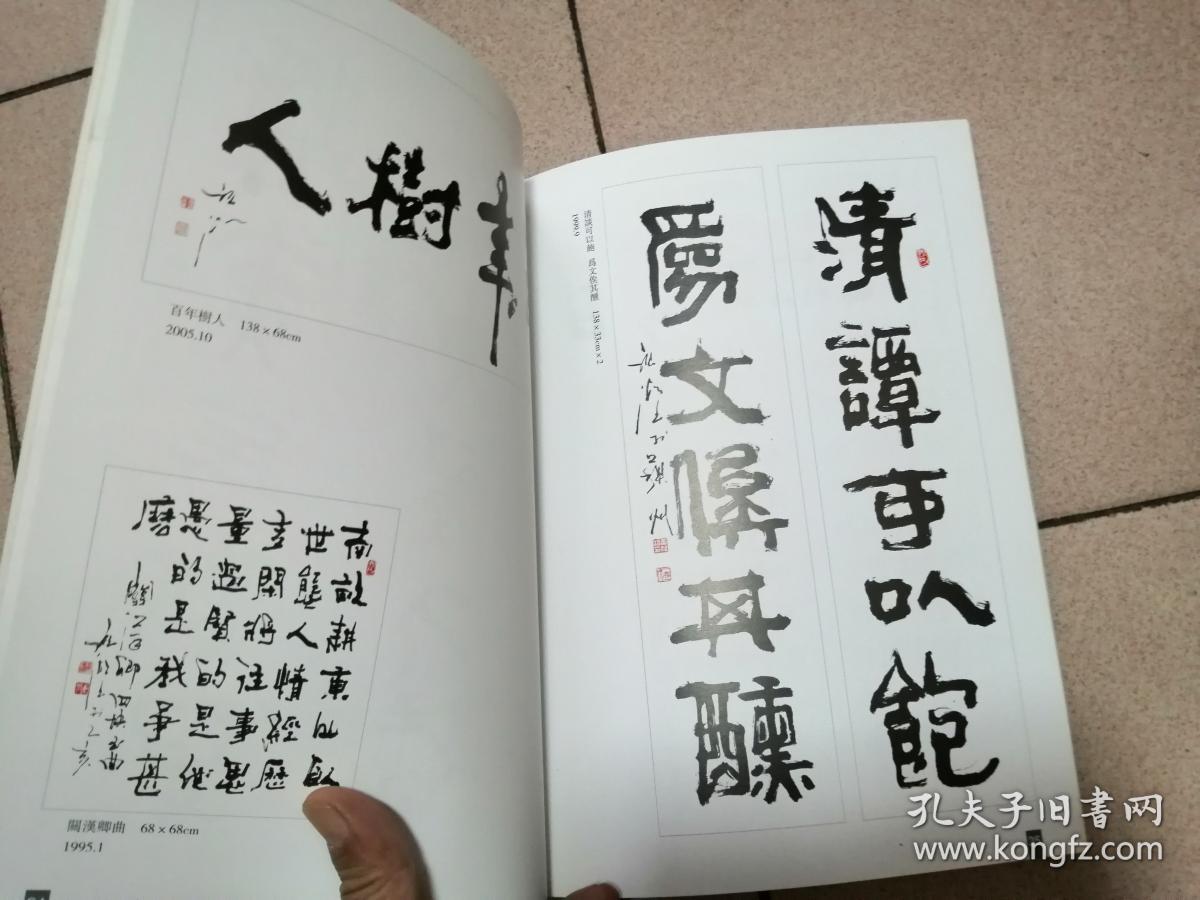 年樹人
百年樹人 138×68cm
2005.10
南畝耕東山臥
世態人情經歷
多閒將往事思
量過賢的是他
愚的是我爭甚
麼
關漢卿曲 68×68cm
1995.1
清譚可以飽
爲文俟其醺
清談可以飽 爲文俟其醺 138×33cm×2
1999.9
孔夫子旧书网
www.kongfz.com